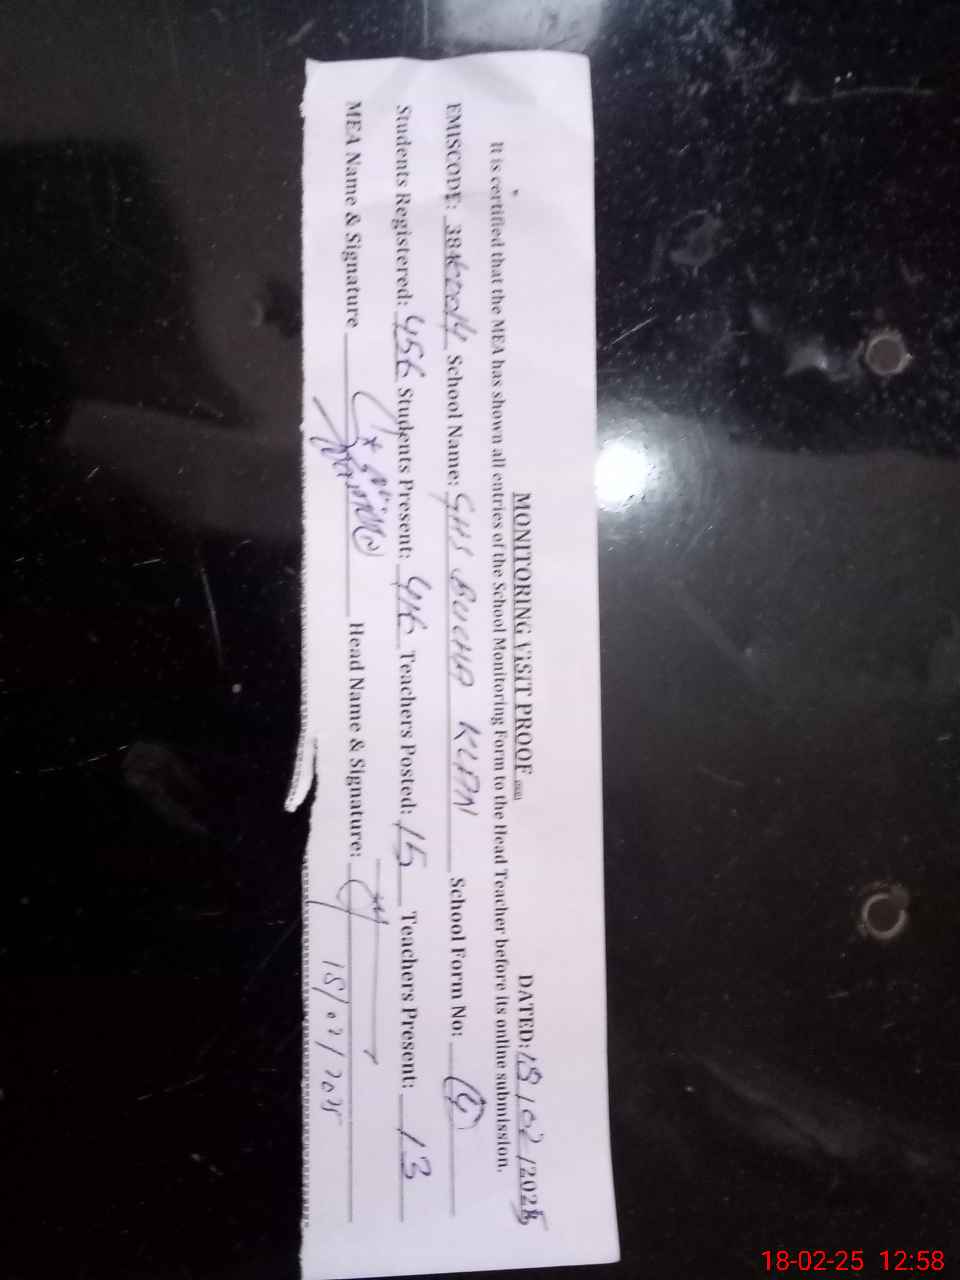 MONITORING VISIT PROOF DATED: 18/02/2025
It is certified that the MEA has shown all entries of the School Monitoring Form to the Head Teacher before its online submission.
EMISCODE: School Name: GHS BUCHA KLAN School Form No: 4
Students Registered: 456 Students Present: 416 Teachers Posted: 15 Teachers Present: 13
MEA Name & Signature Head Name & Signature: 18/02/2025
18-02-25 12:58